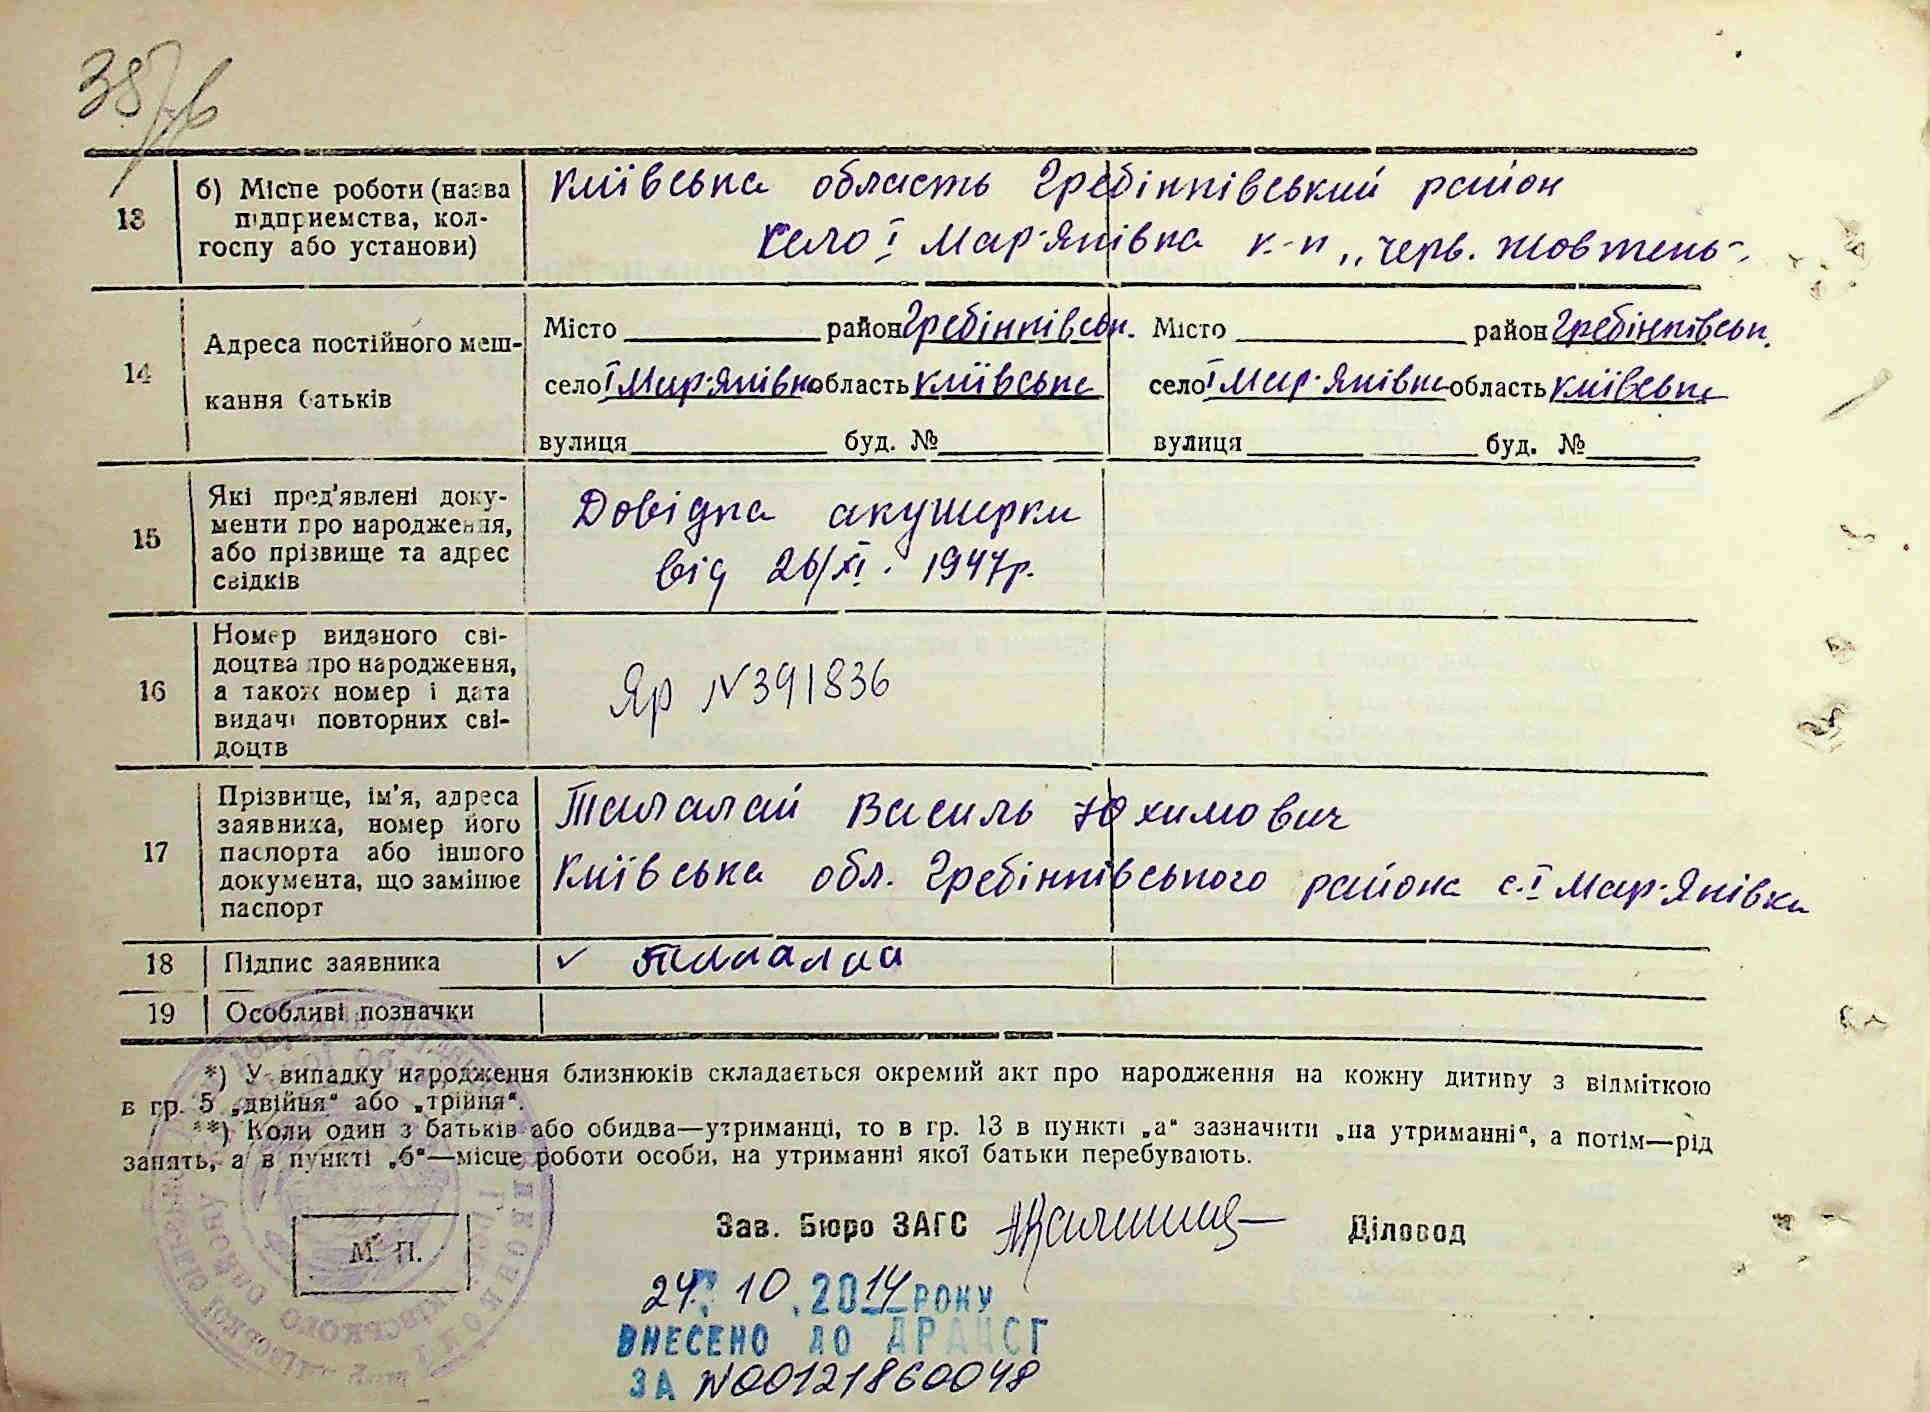 38
13 б) Місце роботи (назва підприємства, колгоспу або установи)
Київська область Гребінківський район
село І Мар'янівка к-п „черв. Жовтень"
14 Адреса постійного мешкання батьків
Місто район Гребінківськ. Місто район Гребінківськ.
село І Мар'янівка область Київська село І Мар'янівка область Київська
вулиця буд. № вулиця буд. №
15 Які пред'явлені документи про народження, або прізвище та адрес свідків
Довідка акушерки
від 26/XI. 1947р.
16 Номер виданого свідоцтва про народження, а також номер і дата видачі повторних свідоцтв
Яр №391836
17 Прізвище, ім'я, адреса заявника, номер його паспорта або іншого документа, що замінює паспорт
Талалай Василь Юхимович
Київська обл. Гребінківського района с. І Мар'янівка
18 Підпис заявника
Талалай
19 Особливі позначки
*) У випадку народження близнюків складається окремий акт про народження на кожну дитину з відміткою
в гр. 5 „двійня" або „трійня".
**) Коли один з батьків або обидва—утриманці, то в гр. 13 в пункті „а" зазначити „на утриманні", а потім—рід
занять, а в пункті „б"—місце роботи особи, на утриманні якої батьки перебувають.
Зав. Бюро ЗАГС Діловод
М. П.
24. 10 .2014 РОКУ
ВНЕСЕНО ДО ДРАЦСГ
ЗА №00121860048